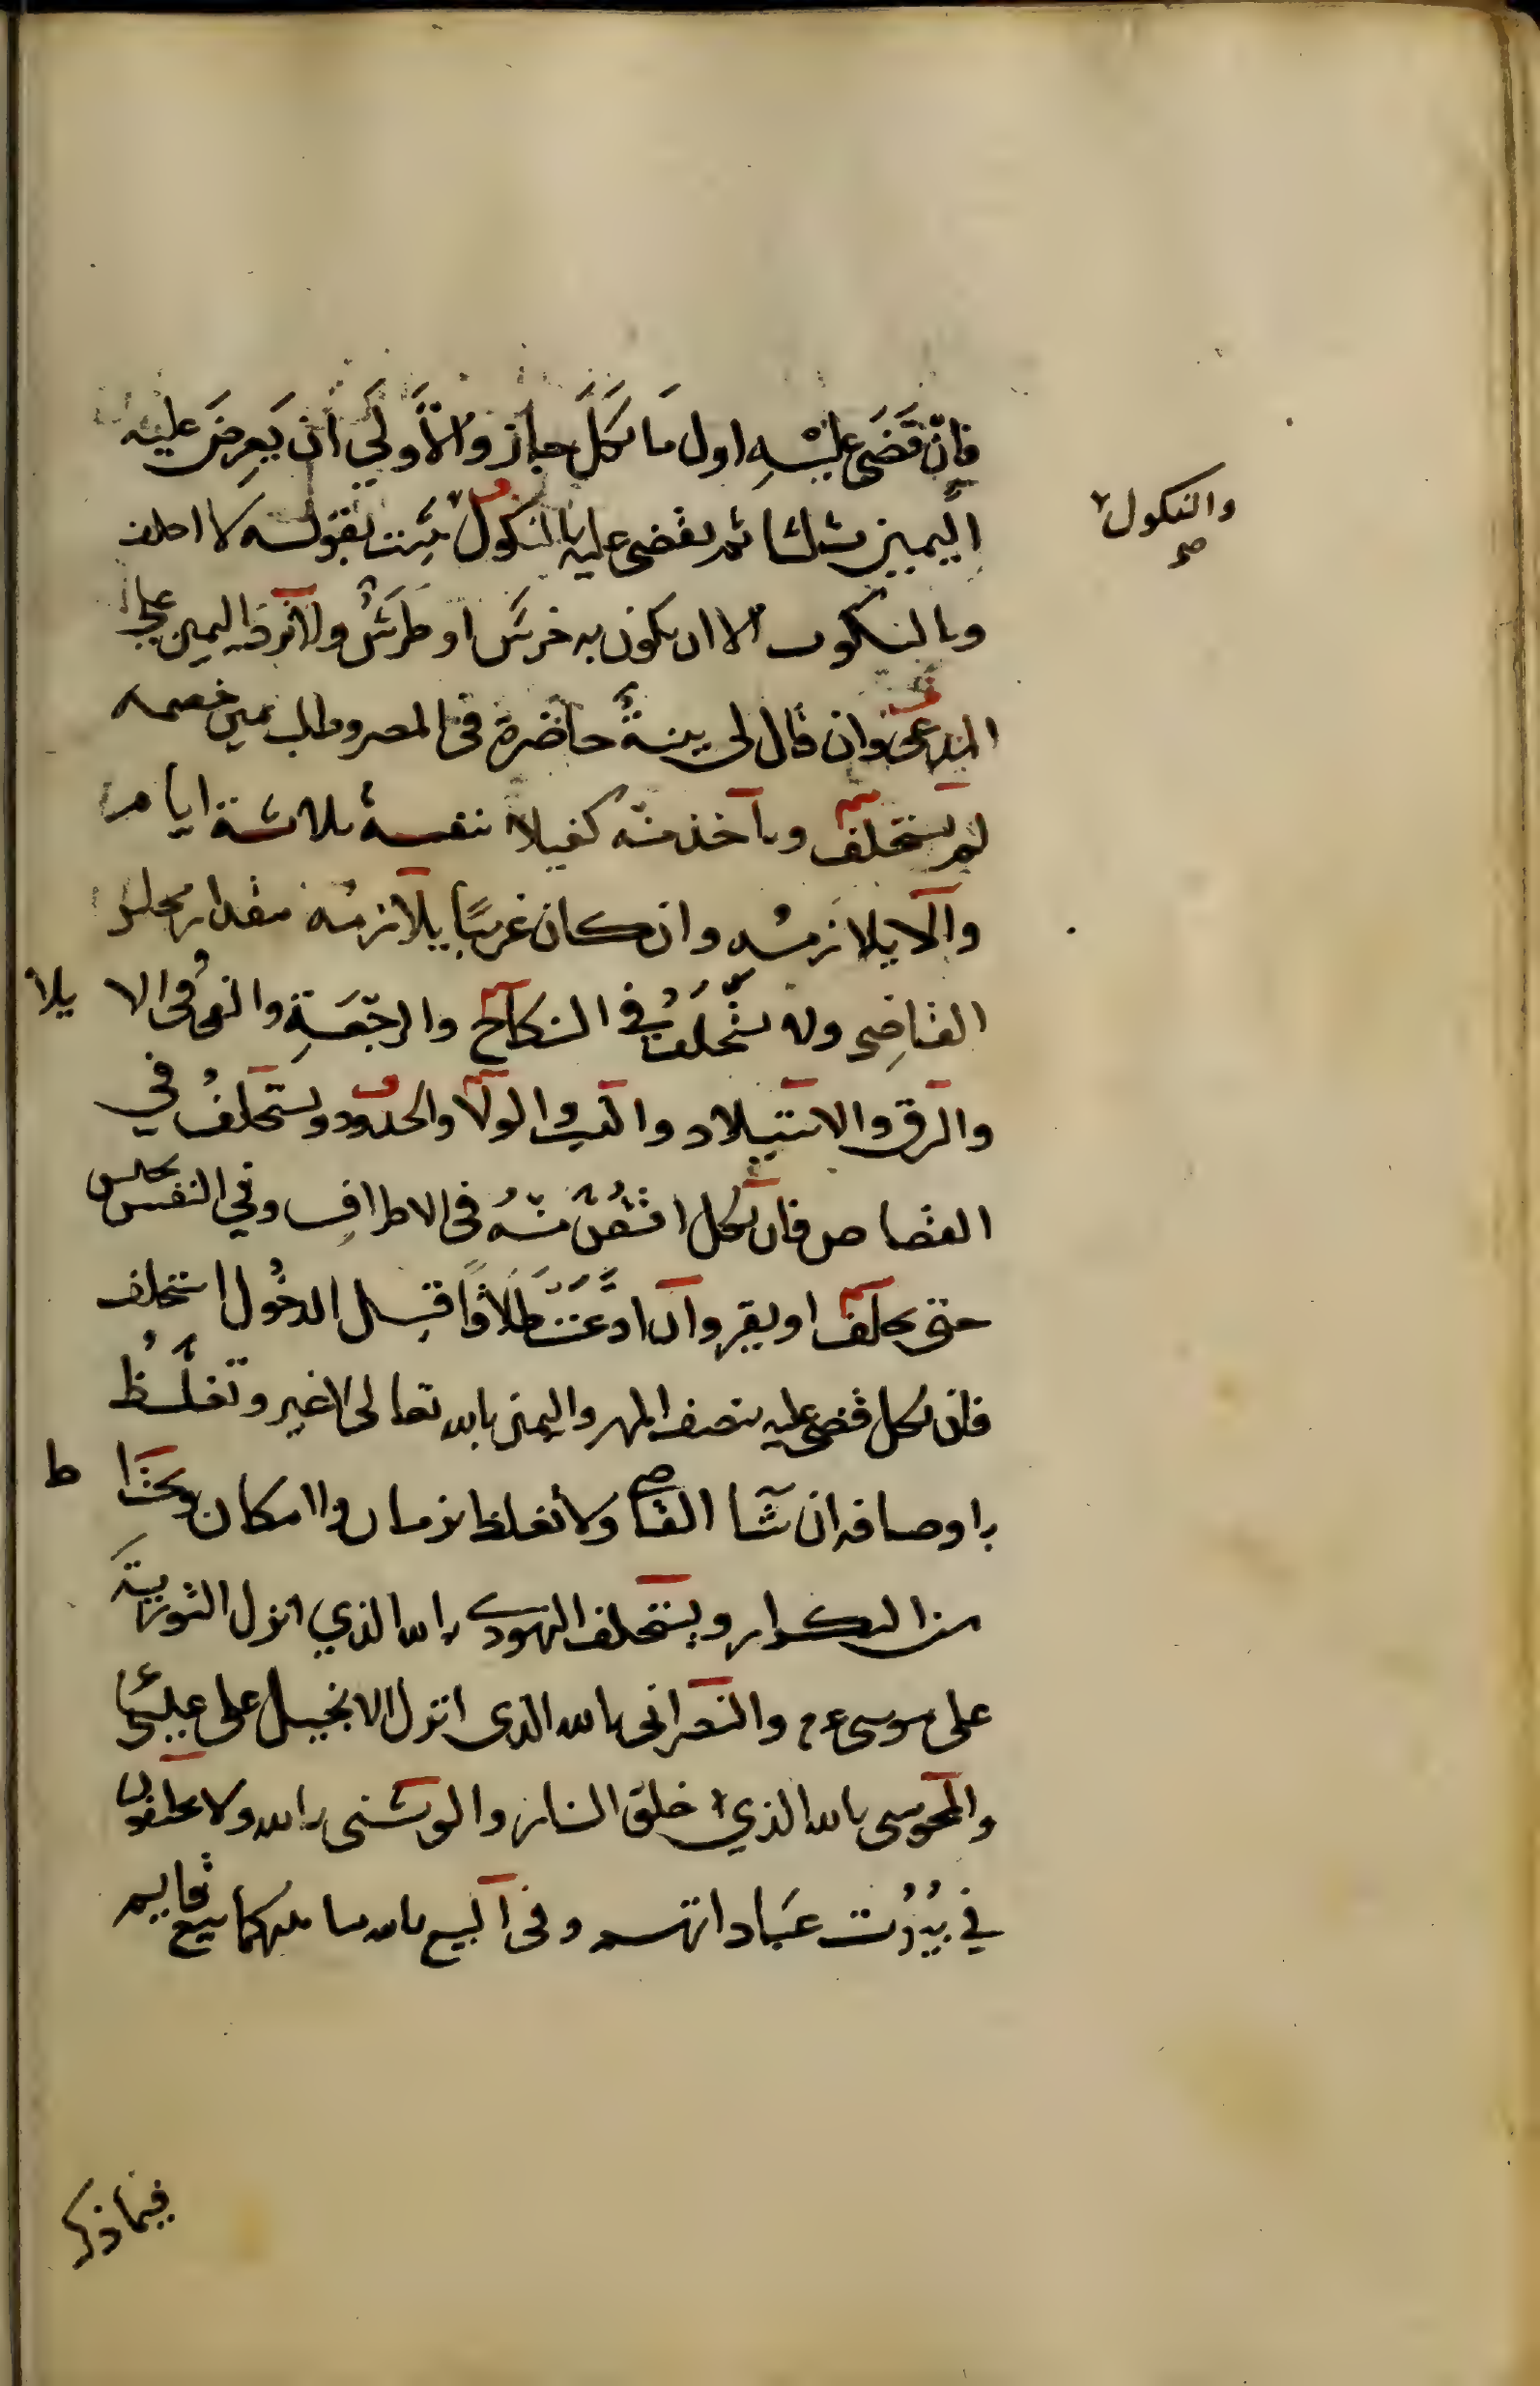 فان قَضَى عليْهِ اول مَا نَكَلَ جاز والأَولَي ان يَعرِضَ عليه
والنكول صح
اليمين ثلثا ثم يقضي عليه بالنكول يثبت بقوله لا احلف
وبالسكوت الا ان يكون به خرسٌ او طَرَشٌ ولا ترد اليمين على
المدعى وان قال لى بينةٌ حاضرة فى المصر وطلب يمين خصمه
لم يستحلف وياخذ منه كفيلا بنفسه ثلاثة ايام
والا يلازمه وان كان غريبًا يلازمه مقدار مجلس
القاضِى ولا يستحْلَفُ في النكاح والرجْعَةِ والفئ فى الا يلا
والرق والاستيلاد والنسب والولا والحدود ويستحلفُ في
القصاص فان نكل اقتُصَّ منهُ فى الاطرافِ وفي النفس يحبس
حتى يحلف او يقر وان ادَّعَتْ طَلاقًا قبل الدخُول استحلف
فان نكل قضى عليه بنصف المهر واليمين بالله تعالى لا غير وتغلَّظُ
باوصافه ان شا القاضى ولا تغلظ بزمان ولا مكان ويحتا ط
من التكرار ويستحلف اليهودى بالله الذي انزل التورية
على موسى ع م والنصرانى بالله الذى انزل الانجيل على عيسى
والمجوسى بالله الذي خلق النار والوثنى بالله ولا يحلفون
في بيُوُت عبَاداتهم وفى البيع بالله ما بينكما بيع قايم
فيما ذكر